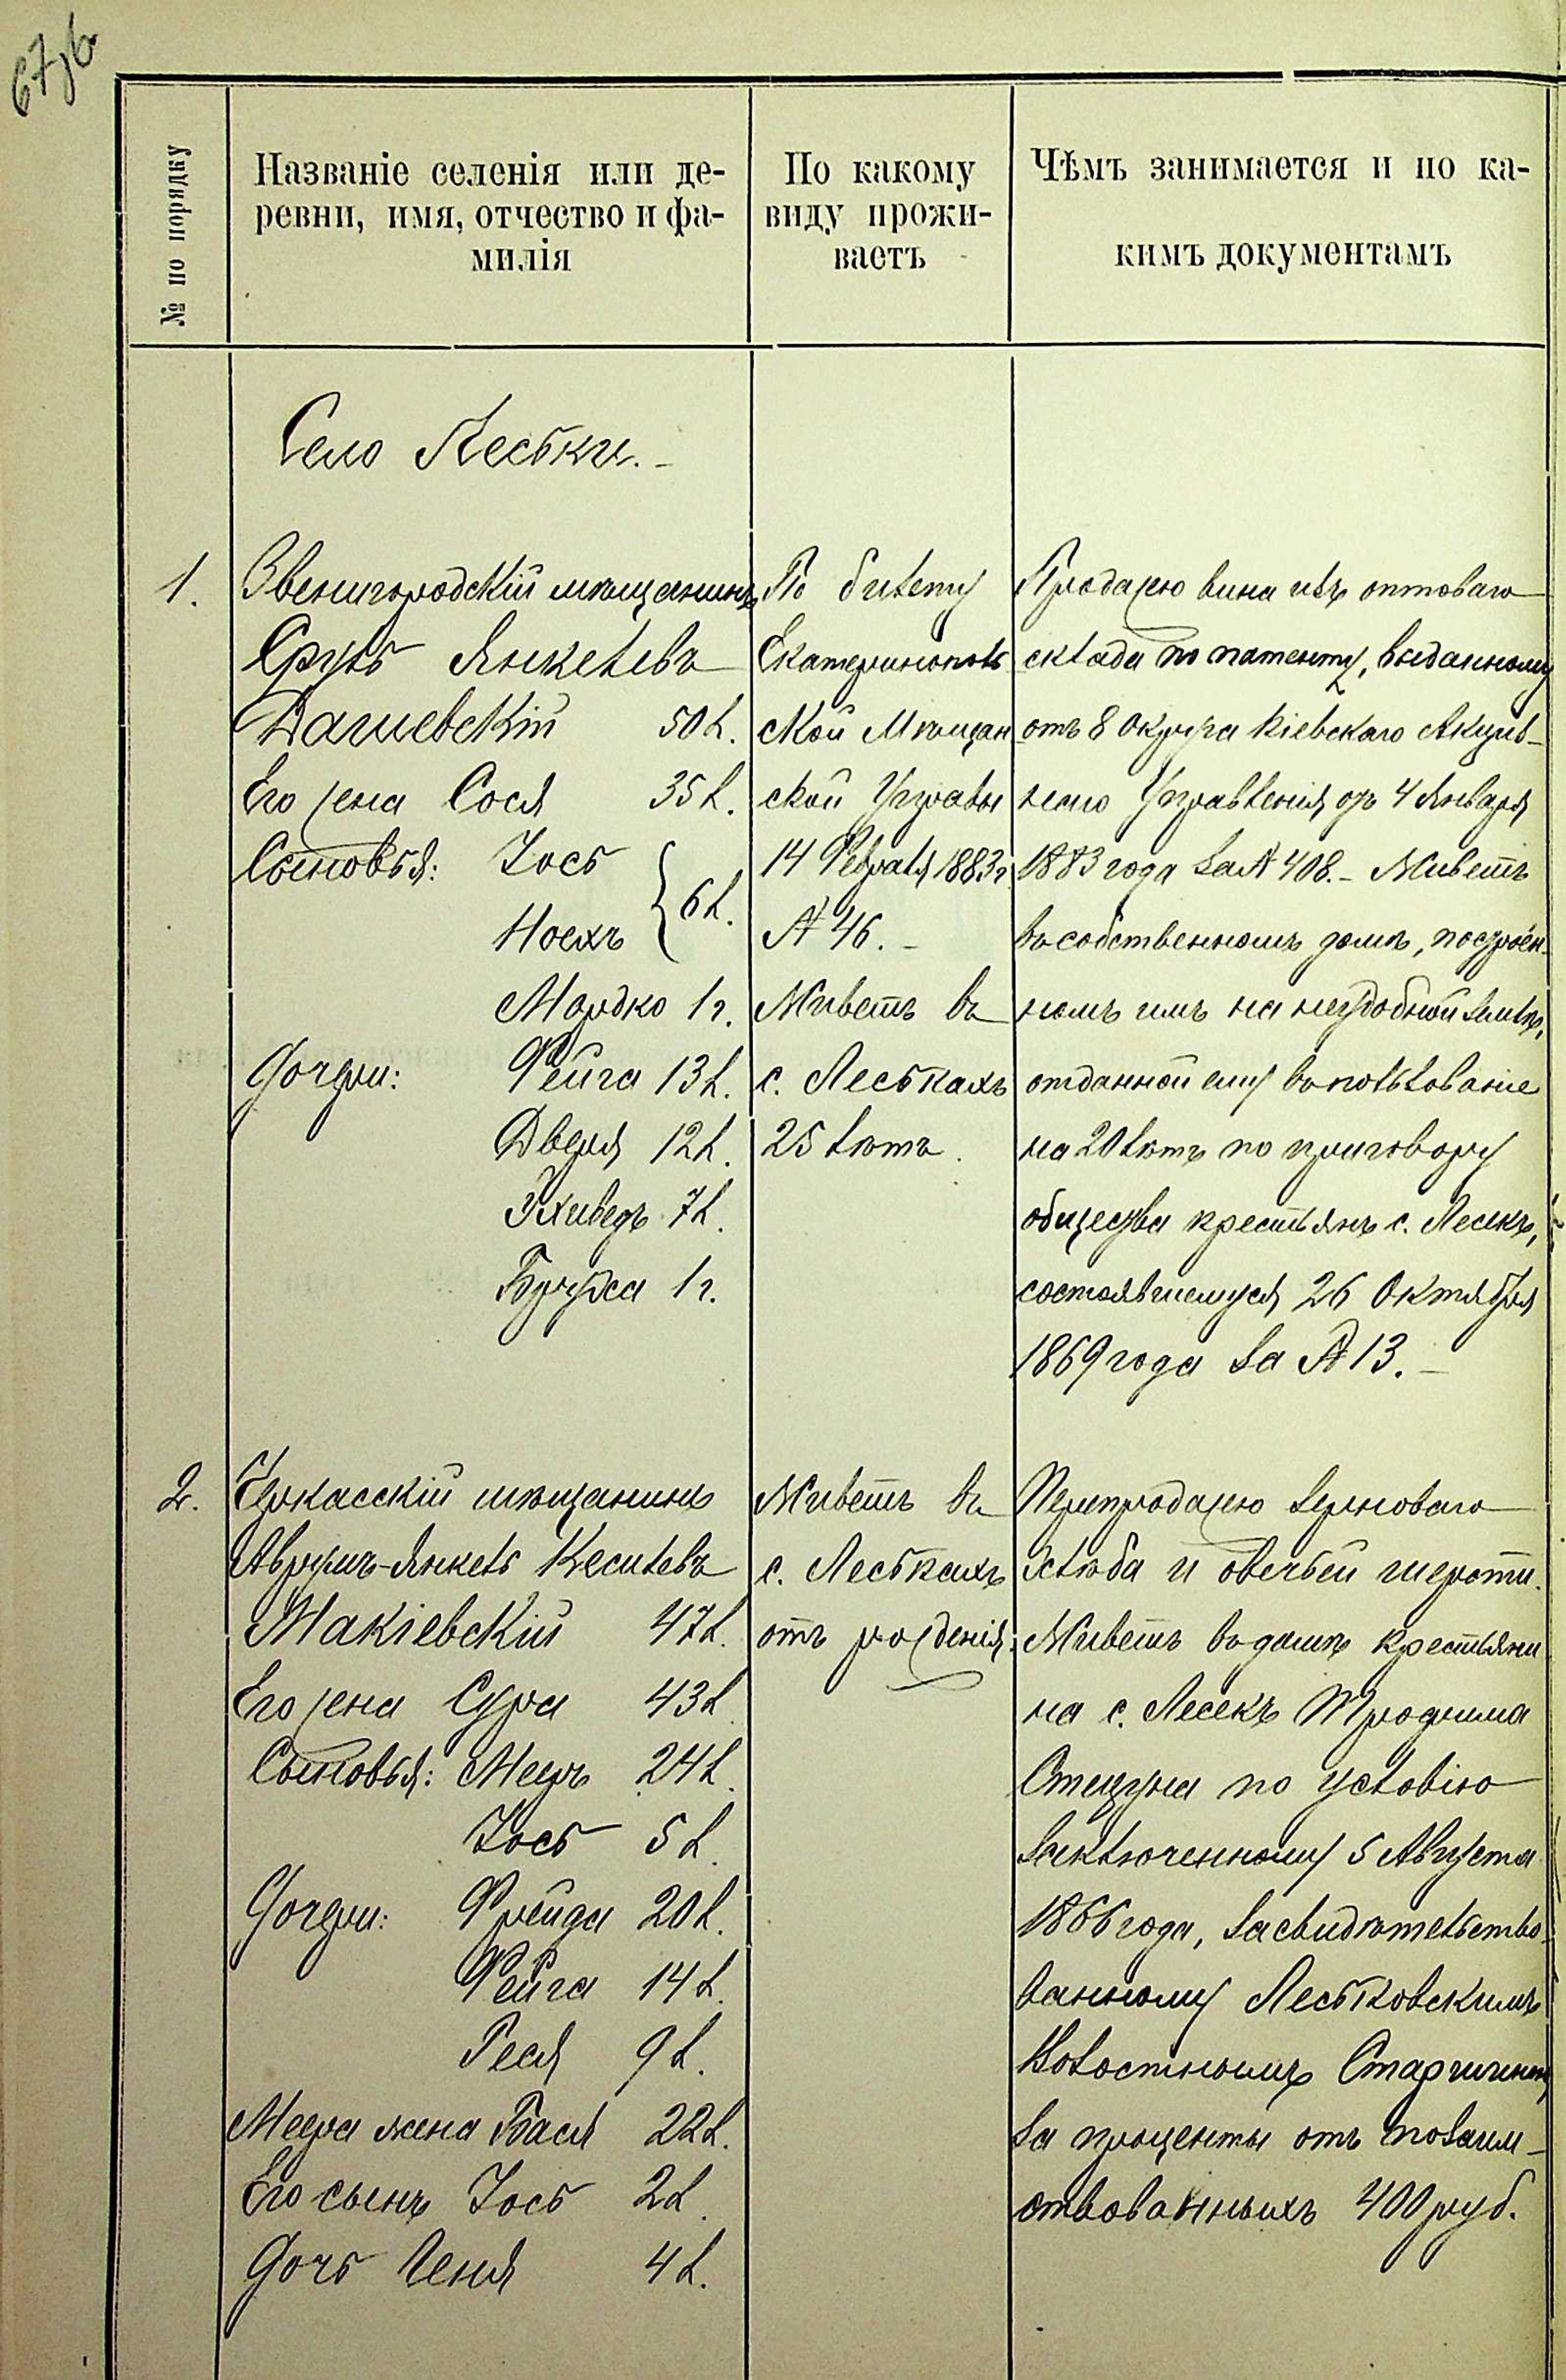 67об
№ по порядку
Названіе селенія или де-
ревни, имя, отчество и фа-
милія
По какому
виду прожи-
ваетъ
Чѣмъ занимается и по ка-
кимъ документамъ
Село Леськи.-
1.
Звенигородскій мѣщанинъ
Сруль Янкелевъ
Дашевскій 50 л.
Его жена Сося 35 л.
Сыновья: Іось
Ноехъ } 6 л.
Мордко 1 г.
Дочери: Фейга 13 л.
Двейря 12 л.
Ихиведъ 7 л.
Бруха 1 г.
По билету
Екатеринополь
ской Мѣщан
ской Управы
14 Февраля 1883 г
№ 46.-
Живетъ въ
с. Леськахъ
25 лѣтъ.
Продажею вина изъ оптоваго
склада по патенту, выданному
отъ 8 округа Кіевскаго Акциз-
наго Управленія отъ 4 Января
1883 года за № 408.- Живетъ
въ собственномъ домѣ, построен-
номъ имъ на неудобной землѣ,
отданной ему въ пользованіе
на 20 лѣтъ по приговору
общества крестьянъ с. Лесекъ,
состоявшемуся 26 Октября
1869 года за № 13.-
2.
Черкасскій мѣщанинъ
Аврумъ-Янкель Кесилевъ
Макіевскій 47 л.
Его жена Сура 43 л.
Сыновья: Меер 24 л.
Іось 5 л.
Дочери: Фрейда 20 л.
Фейга 14 л.
Рейся 9 л.
Меера жена Бася 22 л.
Его сынъ Іось 2 л.
Дочь Геня 4 л.
Живетъ въ
с. Леськахъ
отъ рожденія.
Перепродажею зерноваго
хлѣба и овечьей шерсти.
Живетъ въ домѣ крестьяни
на с. Лесекъ Трофима
по условію
заключенному 5 Августа
1866 года, засвидѣтельство-
ванному Леськовскимъ
Волостнымъ Старшиною
за проценты отъ позаим-
ствованныхъ 400 руб.